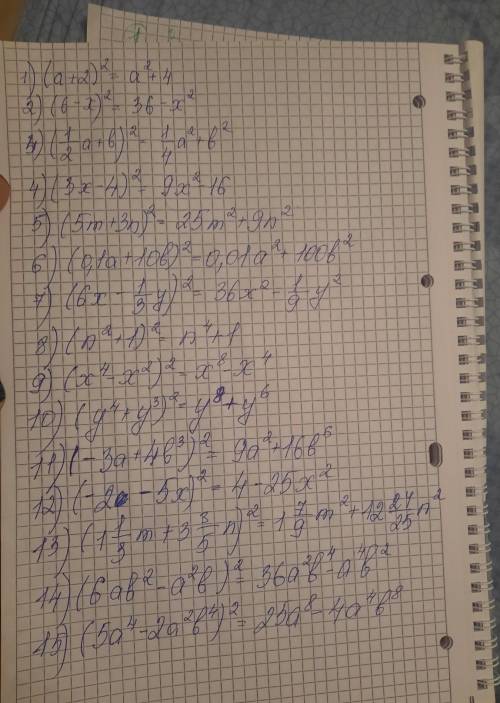 1) (a+2)² = a²+4
2) (6-x)² = 36-x²
3) (1/2 a+b)² = 1/4 a²+b²
4) (3x-4)² = 9x²-16
5) (5m+3n)² = 25m²+9n²
6) (0,1a+10b)² = 0,01a²+100b²
7) (6x - 1/3 y)² = 36x² - 1/9 y²
8) (n²+1)² = n⁴+1
9) (x⁴-x²)² = x⁸-x⁴
10) (y⁴+y³)² = y⁸+y⁶
11) (-3a+4b³)² = 9a²+16b⁶
12) (-2 -5x)² = 4-25x²
13) (1 1/3 m+3 3/5 n)² = 1 7/9 m²+12 24/25 n²
14) (6ab²-a²b)² = 36a²b⁴-a⁴b²
15) (5a⁴-2a²b⁴)² = 25a⁸-4a⁴b⁸